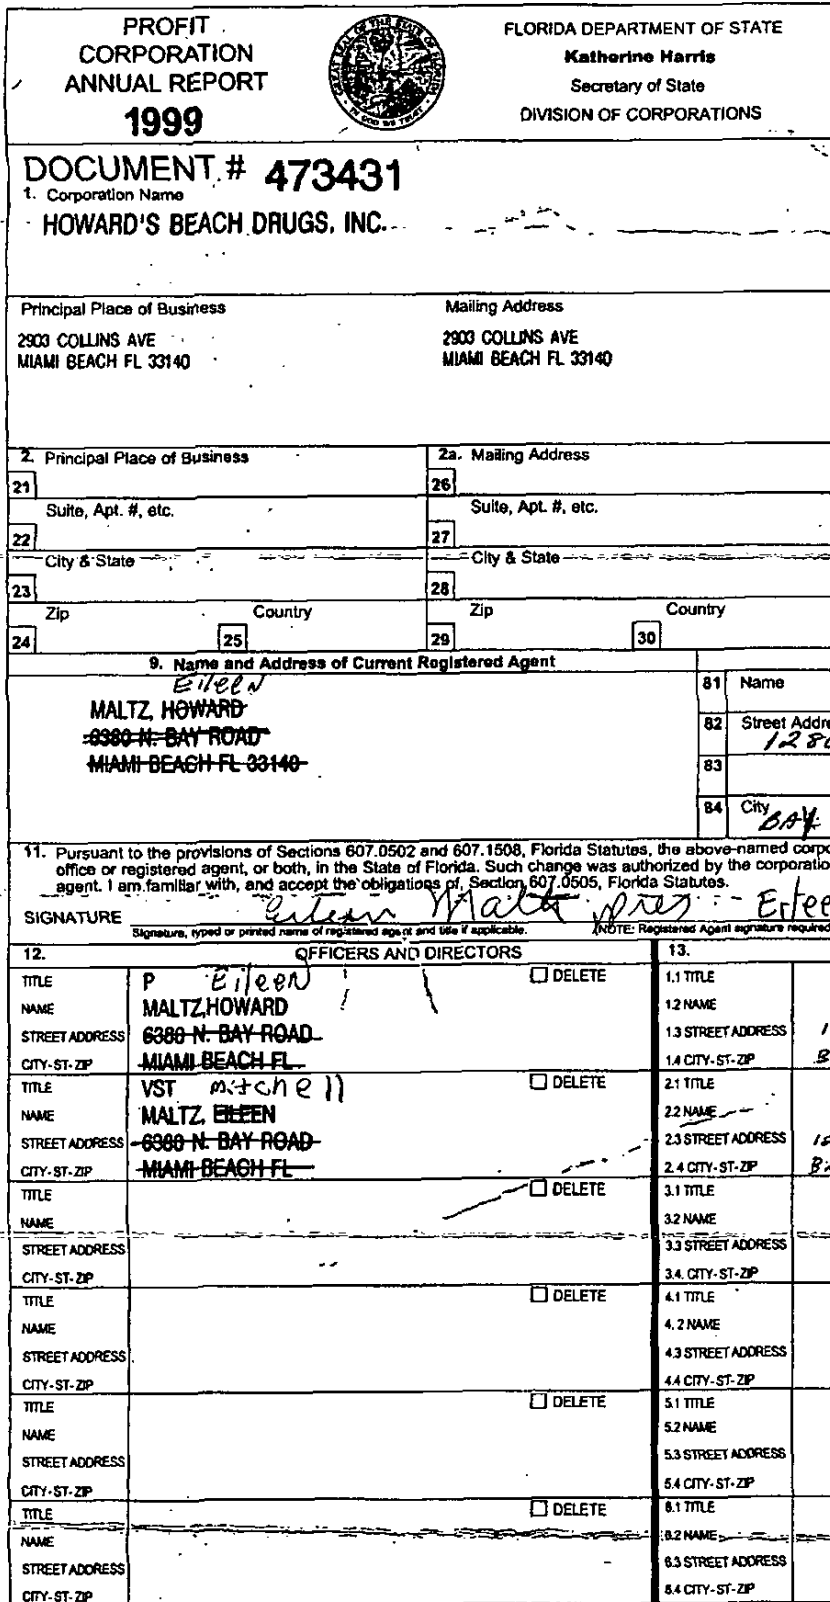 PROFIT
CORPORATION
ANNUAL REPORT
1999
GREAT SEAL OF THE STATE OF FLORIDA
IN GOD WE TRUST
FLORIDA DEPARTMENT OF STATE
Katherine Harris
Secretary of State
DIVISION OF CORPORATIONS
DOCUMENT # 473431
1. Corporation Name
HOWARD'S BEACH DRUGS, INC.
Principal Place of Business
Mailing Address
2903 COLLINS AVE
MIAMI BEACH FL 33140
2903 COLLINS AVE
MIAMI BEACH FL 33140
2. Principal Place of Business
2a. Mailing Address
21
26
Suite, Apt. #, etc.
Suite, Apt. #, etc.
22
27
City & State
City & State
23
28
Zip
Country
Zip
Country
24
25
29
30
9. Name and Address of Current Registered Agent
Eileen
MALTZ, HOWARD
6380 N. BAY ROAD
MIAMI BEACH FL 33140
81 Name
82 Street Addre
128
83
84 City
BAY
11. Pursuant to the provisions of Sections 607.0502 and 607.1508, Florida Statutes, the above-named corpo
office or registered agent, or both, in the State of Florida. Such change was authorized by the corporatio
agent. I am familiar with, and accept the obligations of, Section 607.0505, Florida Statutes.
SIGNATURE Eileen Maltz pres Eilee
Signature, typed or printed name of registered agent and title if applicable.
(NOTE: Registered Agent signature required
12. OFFICERS AND DIRECTORS
13.
TITLE P Eileen DELETE
NAME MALTZ,HOWARD
STREET ADDRESS 6380 N. BAY ROAD
CITY-ST-ZIP MIAMI BEACH FL
1.1 TITLE
1.2 NAME
1.3 STREET ADDRESS 1
1.4 CITY-ST-ZIP B
TITLE VST mitchell DELETE
NAME MALTZ, EILEEN
STREET ADDRESS 6380 N. BAY ROAD
CITY-ST-ZIP MIAMI BEACH FL
2.1 TITLE
2.2 NAME
2.3 STREET ADDRESS
2.4 CITY-ST-ZIP
TITLE DELETE
NAME
STREET ADDRESS
CITY-ST-ZIP
3.1 TITLE
3.2 NAME
3.3 STREET ADDRESS
3.4. CITY-ST-ZIP
TITLE DELETE
NAME
STREET ADDRESS
CITY-ST-ZIP
4.1 TITLE
4.2 NAME
4.3 STREET ADDRESS
4.4 CITY-ST-ZIP
TITLE DELETE
NAME
STREET ADDRESS
CITY-ST-ZIP
5.1 TITLE
5.2 NAME
5.3 STREET ADDRESS
5.4 CITY-ST-ZIP
TITLE DELETE
NAME
STREET ADDRESS
CITY-ST-ZIP
6.1 TITLE
6.2 NAME
6.3 STREET ADDRESS
6.4 CITY-ST-ZIP